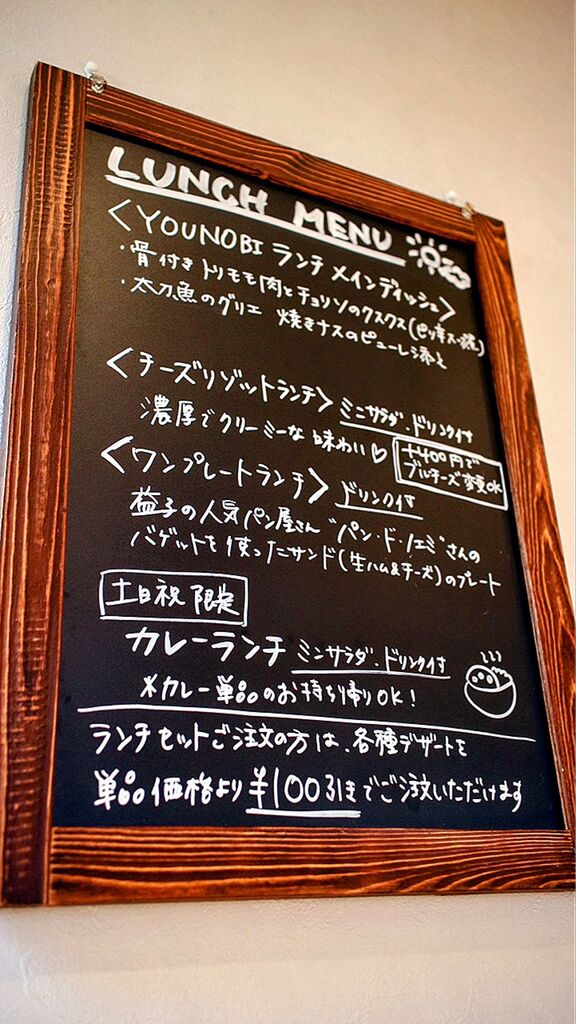 LUNCH MENU
〈YOUNOBI ランチ メインディッシュ〉
・骨付きトリモモ肉とチョリソのクスクス(ピリ辛スープ煮)
・太刀魚のグリエ 焼きナスのピューレ添え
〈チーズリゾットランチ〉ミニサラダ・ドリンク付
濃厚でクリーミーな味わい♡
+400円で
ブルーチーズ変更OK
〈ワンプレートランチ〉ドリンク付
益子の人気パン屋さん“パン・ド・ノエミ”さんの
バゲットを使ったサンド(生ハム&チーズ)のプレート
土日祝 限定
カレーランチ ミニサラダ・ドリンク付
※カレー単品のお持ち帰りOK!
ランチセットご注文の方は、各種デザートを
単品価格より¥100引きでご注文いただけます